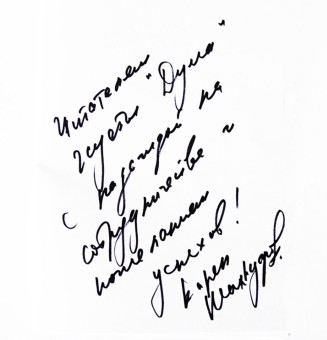 Читателям
газеты "Дума"
с надеждой на
сотрудничество и
пожеланием
успехов!
Карен
Шахназаров